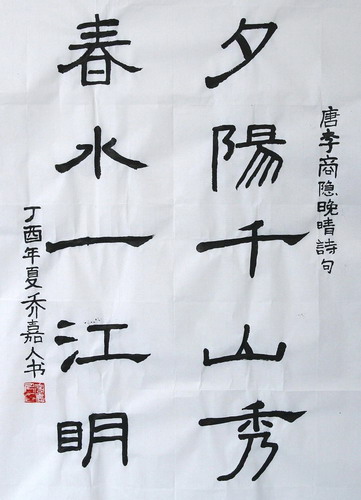 唐李商隐晚晴詩句
夕陽千山秀
春水一江明
丁酉年夏乔嘉人书